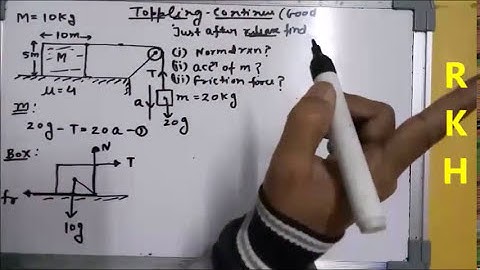 Toppling-Continue (Good
M = 10kg
Just after release find
10m
5m
M
(i) Normal rxn?
(ii) accⁿ of m?
(iii) friction force?
μ = 4
T
a
m = 20kg
20g
m:
20g - T = 20a - ①
Box:
N
T
fr
10g
RKH